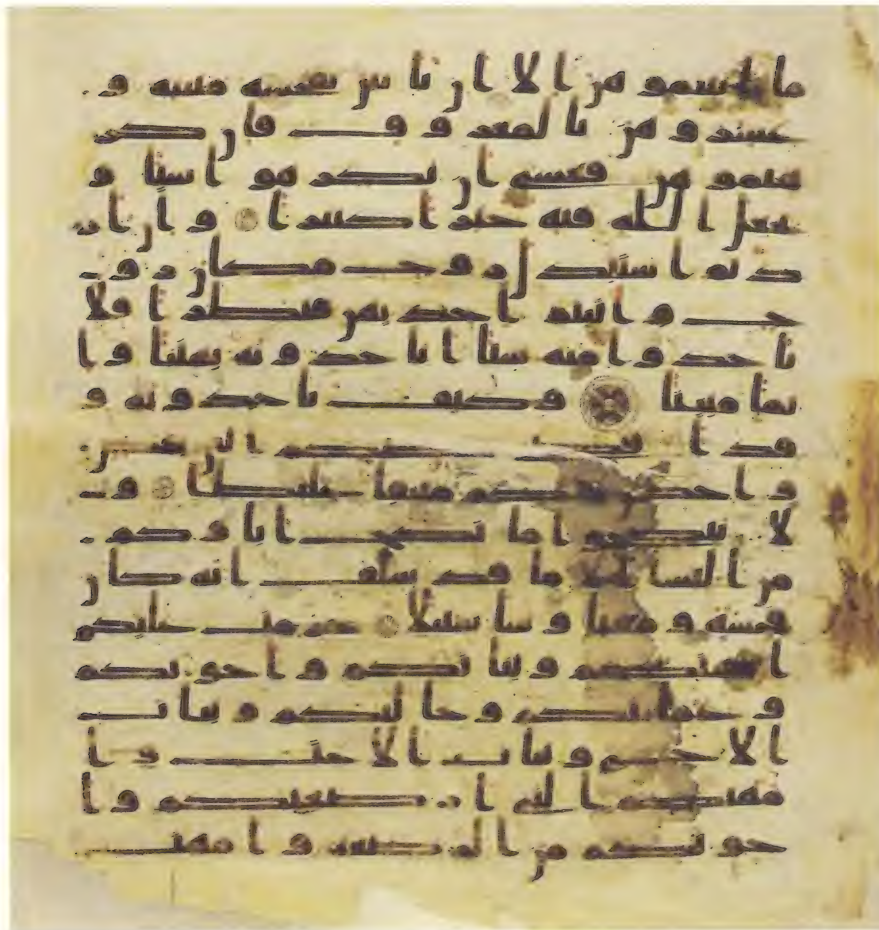 ما اتيتموهن الا ان ياتين بفحشه مبينه و
عشروهن بالمعروف فان كر
هتموهن فعسى ان تكرهوا شيا و
يجعل الله فيه خيرا كثيرا وان ار
دتم استبدل زوج مكان زو
ج واتيتم احديهن قنطرا فلا
تاخذوا منه شيا اتاخذونه بهتنا وا
ثما مبينا وكيف تاخذونه و
قد افضى بعضكم الى بعض
واخذن منكم ميثقا غليظا و
لا تنكحوا ما نكح اباوكم
من النسا الا ما قد سلف انه كان
فحشه ومقتا وسا سبيلا حرمت عليكم
امهتكم وبناتكم واخوتكم
وعمتكم وخلتكم وبنات
الاخ وبنات الاخت وا
مهتكم التى ارضعنكم وا
خوتكم من الرضعه وامهت